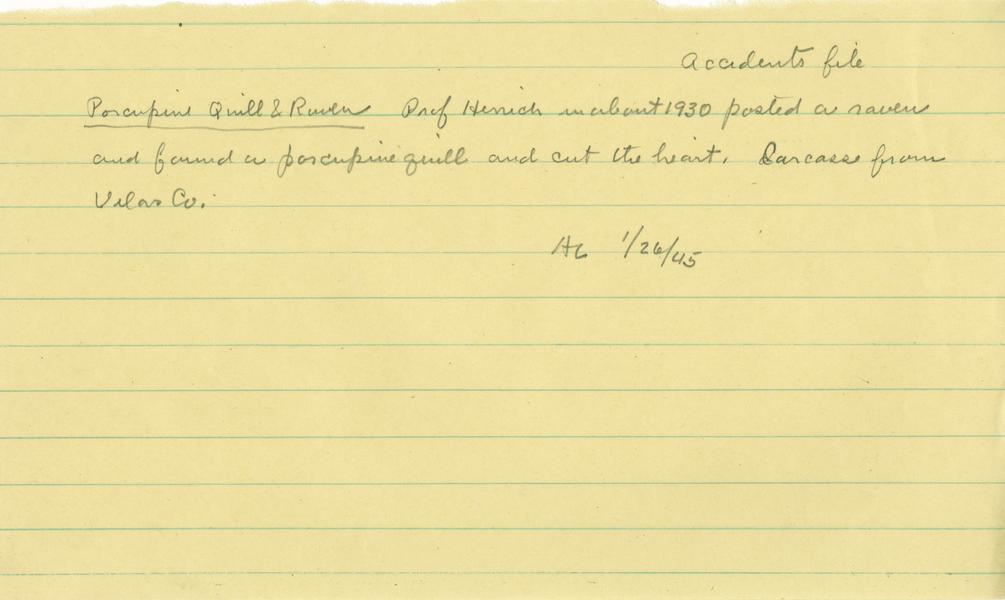 Accidents file
Porcupine Quill & Raven Prof Herrick in about 1930 posted a raven
and found a porcupine quill and cut the heart. Carcass from
Vilas Co.
1/26/45